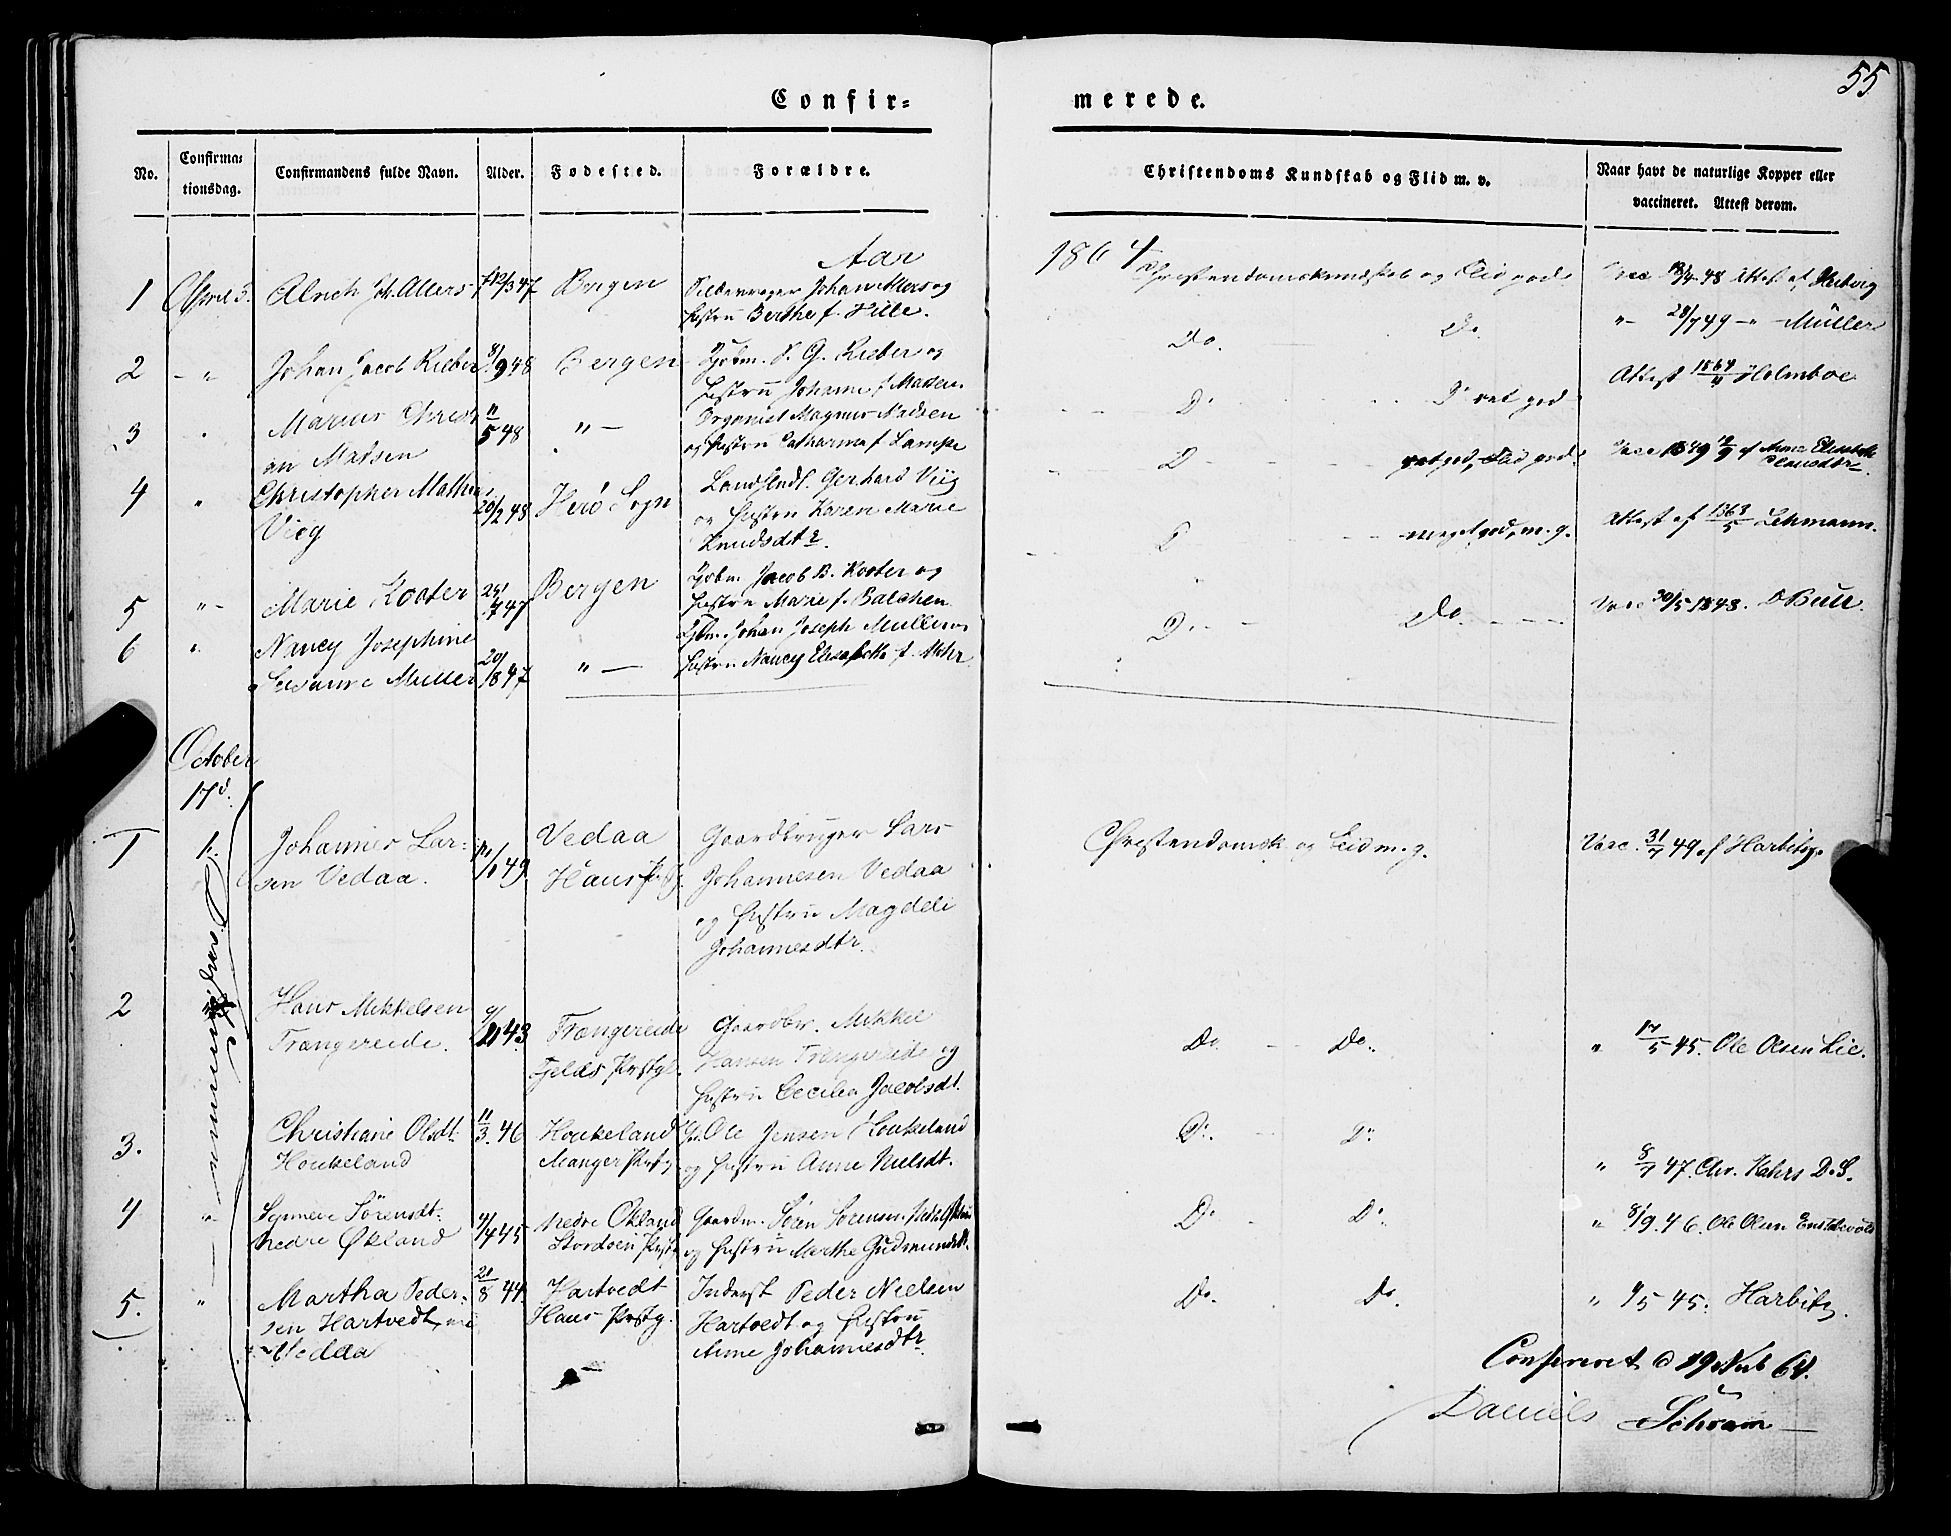 55
Confir=
merede.
No.
Confirma=
tionsdag.
Confirmandens fulde Navn.
Alder.
Fødested.
Forældre.
Christendoms Kundskab og Flid m. v.
Naar havt de naturlige Kopper eller
vaccineret. Attest derom.
Aar
1864
1 April 3. Alrich Allers 12/3 47 Bergen Johan Allers og
Hustru Berthe f. Hille.
Christendomskundskab og Flid god. Vacc 18/4 48 Attest af Herbvig
2 - " Johan Jacob Rieber 8/9 48 Bergen Kjøbm. P. G. Rieber og
Hustru Johanne f Madsen
Do. Do. "- 28/7 49 -" Müller
3 " Marius Christi
an Madsen 11/5 48 "- Organist Magnus Madsen
og Hustru Catharina f Lampe
D° D° ret god Attest 1864/4 Holmboe
4 " Christopher Mathias
Viig 20/2 48 Herø Sogn Landhdl. Gerhard Viig
og Hustru Karen Marie
Knudsdtr.
D ret god, Flid god. Vacc 1849 af Anne Elisabeth
5 "- Marie Kooter 24/7 47 Bergen Kjøbm. Jacob B. Kooter og
Hustru Marie f. Balchen
D meget god, m. g. Attest af 1863/5 Lehmann.
6 " Nancy Josephine
Susanne Müller 20/8 47 "- Kjbm. Johan Joseph Müller og
Hustru Nancy Elisabeth f. Mohr.
D. Do. Vacc 30/5 1848. O Bull.
October
17d.
1 Johannes Lar=
sen Vedaa. 49. Vedaa
Haus Prstg. Gaardbruger Lars
Johannesen Vedaa
og Hustru Magdeli
Johannesdtr.
Christendomsk og Flid m. g. Vacc. 31/7 49 af Harbitz.
2 Hans Mikkelsen
Trængereide. 43. Trængereide
Fjelds Prstgj. Gaardbr. Mikkel
Hansen Trængereide og
Hustru Cecilia Jacobsdt.
Do. Do. " 17/5 45. Ole Olsen Lie.
3. Christiane Olsdt.
Houkeland 11/3. 46 Houkeland
Manger Prstg Ole Jensen Houkeland
og Hustru Anne Nielsdt.
D°. D° " 8/7 47. Chr. Kahrs D. S.
4 " Synneve Sørensdt.
nedre Økland 4/4 45 Nedre Økland
Stordøen Prstg Gaardm. Søren Sørensen Nedre Økland
og Hustru Marthe Gudmundsdt.
D° D° " 8/9. 46. Ole Olsen
5. " Martha Peder=
sen Hartvedt,
Vedaa 21/8 44. Hartvedt
Haus Prstg. Inderst Peder Nielsen
Hartvedt og Hustru
Anne Johannesdtr
Do. Do. " 1/5 45. Harbitz.
Confereret d 19 64.
Daniels Schram